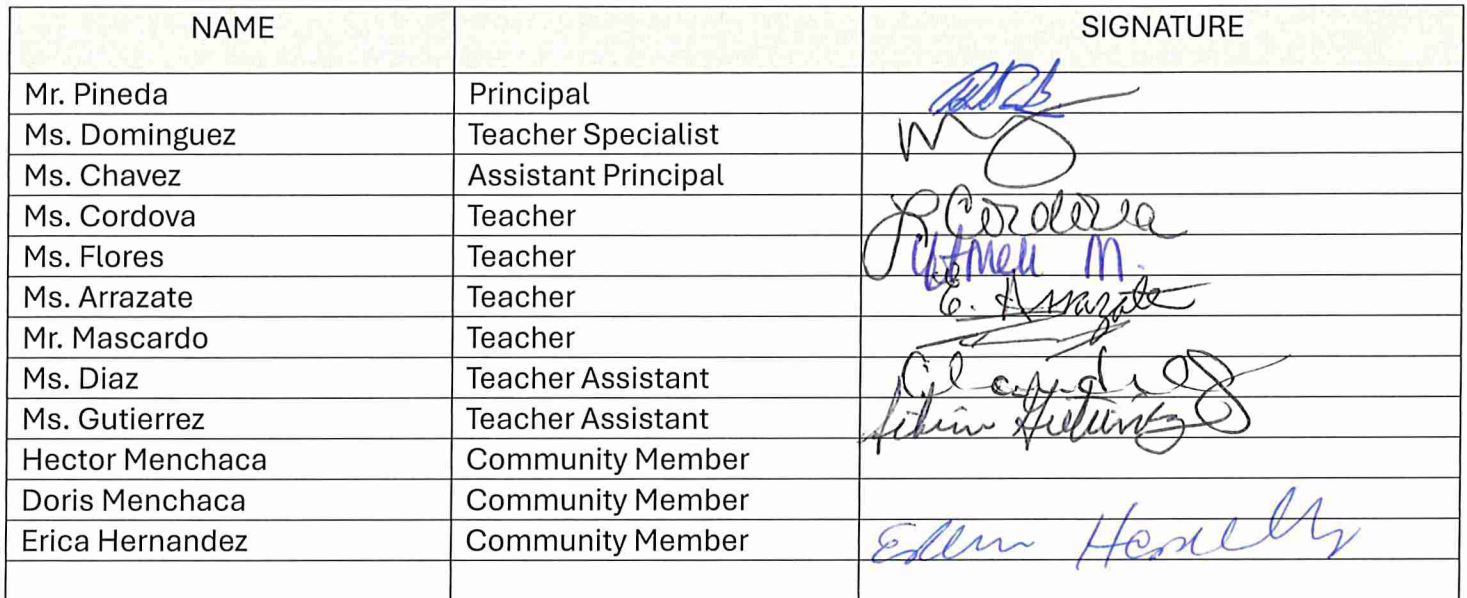 NAME SIGNATURE
Mr. Pineda Principal
Ms. Dominguez Teacher Specialist
Ms. Chavez Assistant Principal
Ms. Cordova Teacher L Cordova
Ms. Flores Teacher M.
Ms. Arrazate Teacher E. Arrazate
Mr. Mascardo Teacher
Ms. Diaz Teacher Assistant
Ms. Gutierrez Teacher Assistant Gutierrez
Hector Menchaca Community Member
Doris Menchaca Community Member
Erica Hernandez Community Member